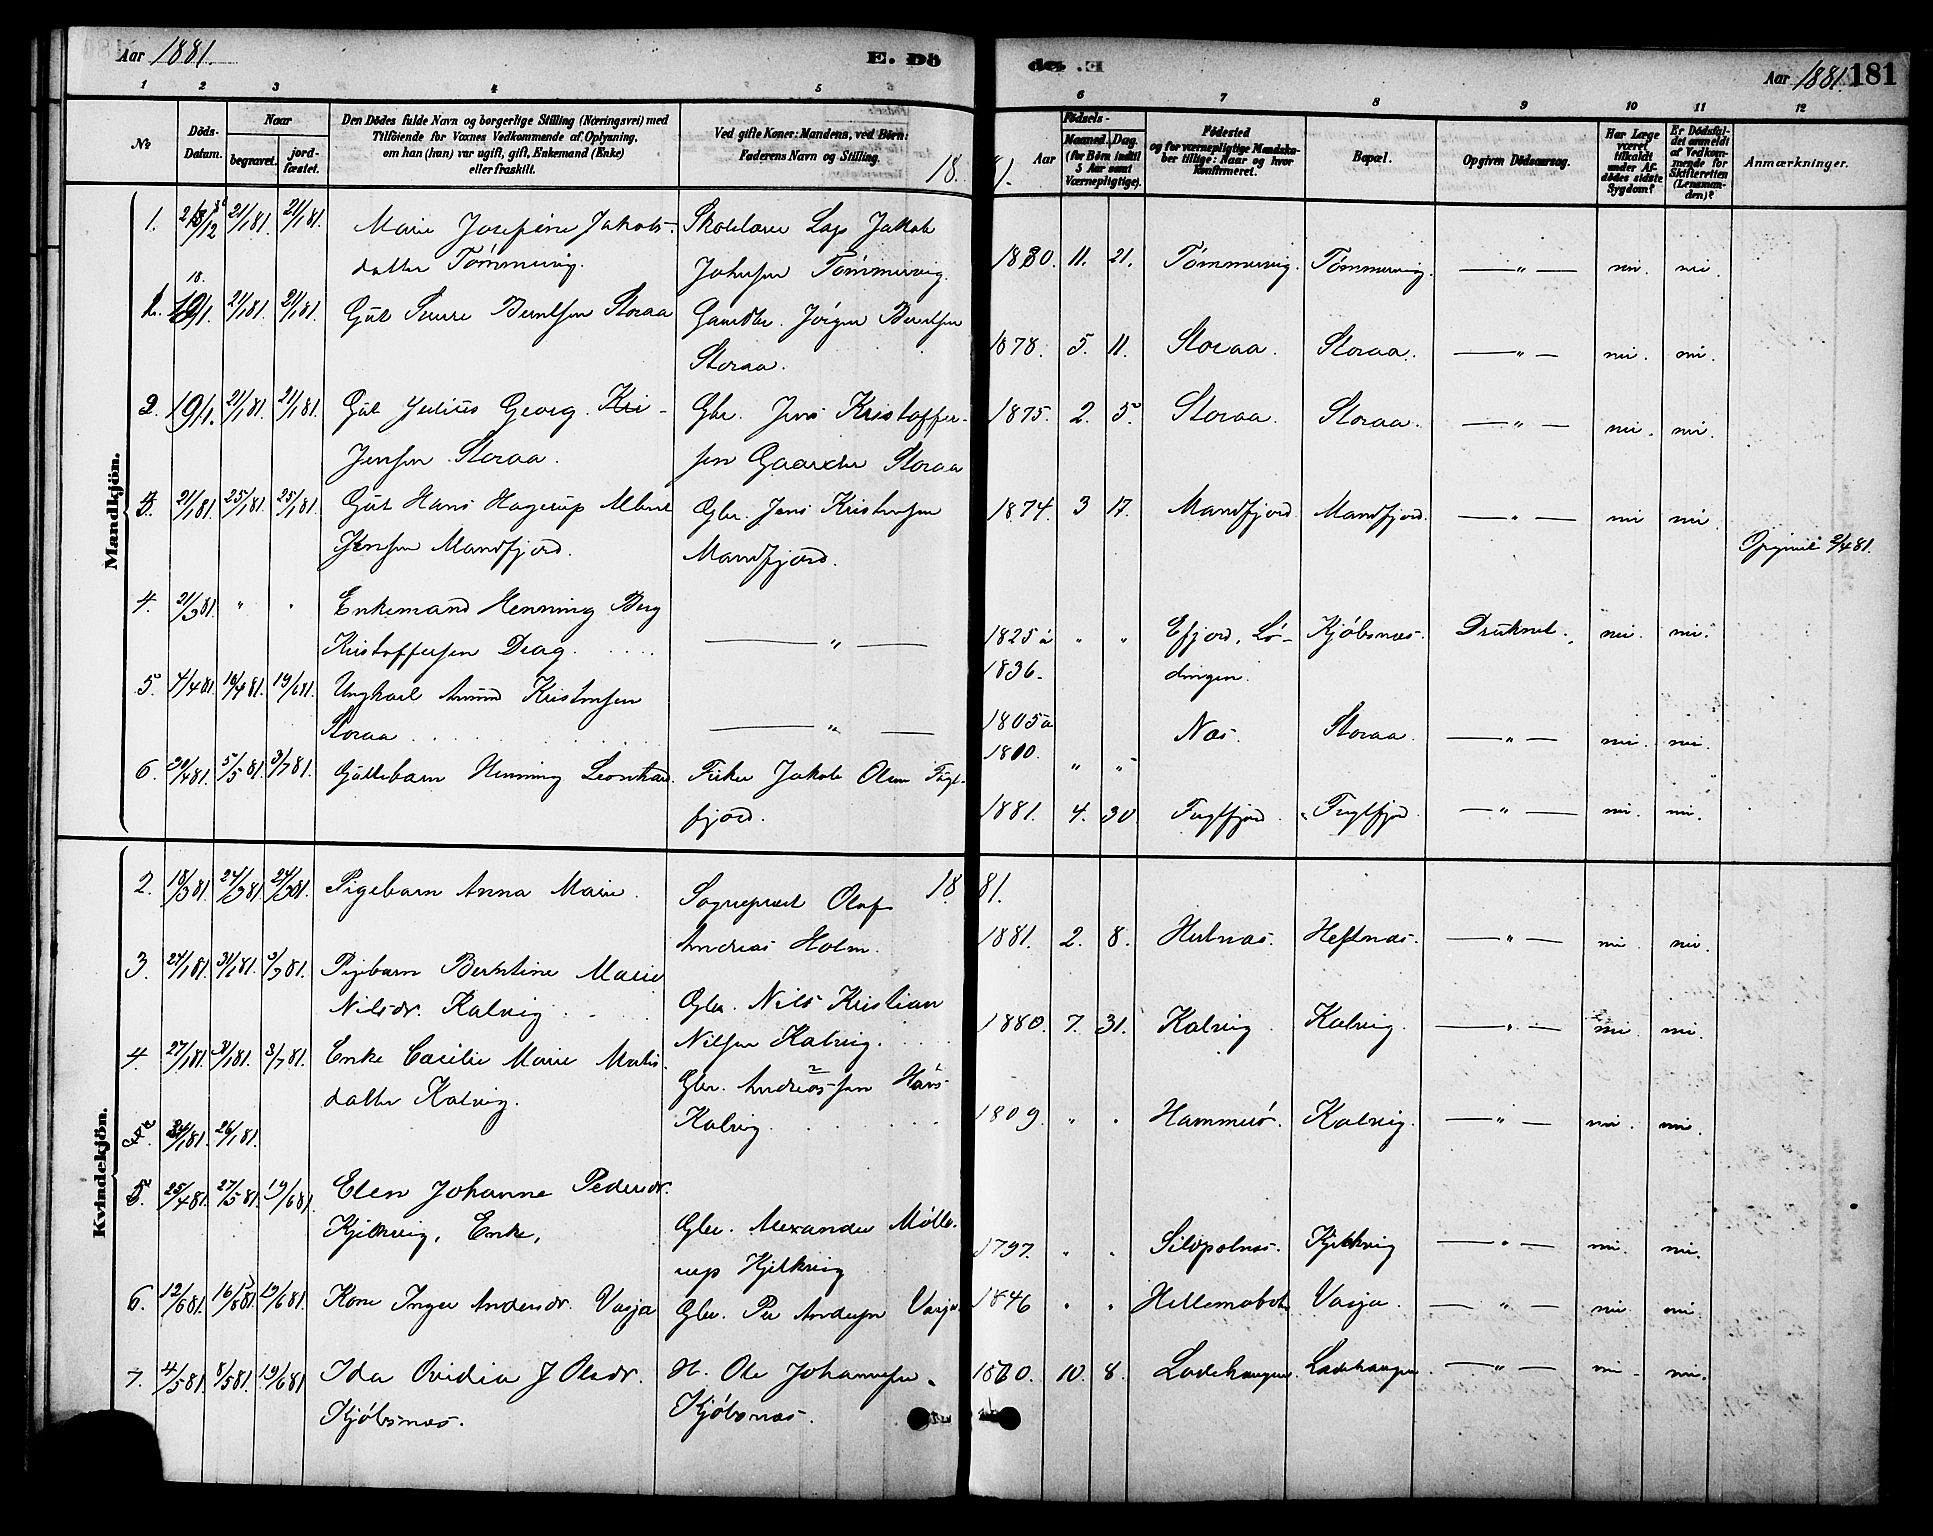 Aar 1881. E. Dö
de. E Aar 1881. 181
1 2 3 4 5
6 7 8 9 10 11 12
No
Döds-Datum.
Naar
begravet.
jordfæstet.
Den Dödes fulde Navn og borgerlige Stilling (Næringsvei) med
Tilföiende for Voxnes Vedkommende af Oplysning,
om han (hun) var ugift, gift, Enkemand (Enke)
eller fraskilt.
Ved gifte Koner: Mandens, ved Börn:
Faderens Navn og Stilling.
Födsels-
Aar
Maaned. Dag.
(for Börn indtil
5 Aar samt
Værnepligtige).
Födested
og for værnepligtige Mandska-
ber tillige: Naar og hvor
konfirmeret.
Bopæl.
Opgiven Dödsaarsag.
Har Læge
været
tilkaldt
under Af-
dödes sidste
Sygdom?
Er Dödsfal-
det anmeldt
af Vedkom-
mende for
Skifteretten
(Lensman-
den)?
Anmærkninger.
18 81.
Mandkjön.
1. 21/1 81. 21/1 81. Marie Josefine Jakobs- Skolelærer Lap Jakob
datter Tømmervig. Johnsen Tømmervig. 1880. 11. 21. Tømmervig. Tømmervig. — " — nei. nei.
19/1. 21/1 81. 21/1 81. Gut Berntsen Storaa Gaardbr. Jørgen Berntsen
Storaa. 1878. 5. 11. Storaa. Storaa. — " — nei. nei.
2. 19/1. 21/1 81. 21/1 81. Gut Julius Georg Kri- Gbr. Jens Kristoffer-
Jensen Storaa. sen Storaa 1875. 2. 5. Storaa. Storaa. — " — nei. nei.
3. 21/1 81. 25/1 81. 25/1 81. Gut Hans Hagerup Albert Gbr. Jens Kristensen
Jensen Mandfjord. Mandfjord. 1874. 3 17. Mandfjord. Mandfjord. — " — nei nei 2/4 81.
4. 21/3 81. " " Enkemand Henning Berg
Kristoffersen Drag. — " — 1825 à " " Efjord, Lø- Kjøbsnæs. Druknet. nei. nei.
1836. dingen.
5. 4/4 81. 16/4 81. 19/6 81. Ungkarl Kristensen
Storaa — " — 1805 à Næs. Storaa. — " — nei. nei.
1810. " "
6. 30/4 81. 5/5 81. 3/7 81. Guttebarn Henning Leonhard. Fisker Jakob Olsen Fugl-
fjord. 1881. 4. 30 Fuglfjord. Fuglfjord. — " — nei. nei.
Kvindekjön.
18 81.
2. 18/3 81. 24/3 81. 24/3 81. Pigebarn Anna Marie. Sognepræst Olaf
Andreas Holm. 1881. 2. 8. Heftnæs. — " — nei. nei.
3. 24/1 81. 31/1 81. 3/7 81. Pigebarn Berntine Marie
Nilsdr. Kalvig. Gbr. Nils Kristian
Nilsen Kalvig. 1880. 7. 31. Kalvig. Kalvig. — " — nei. nei.
4. 27/1 81. 31/1 81. 3/7 81. Enke Cæcilie Marie
datter Kalvig. Gbr. Andreassen Hans
Kalvig. 1809. " " Hammerø. Kalvig. — " — nei. nei.
26/1 81.
5. 25/4 81. 27/5 81. 19/6 81. Elen Johanne Pedersdr.
Kjelkvig, Enke, Gbr. Alexander Mølle-
rup Kjelkvig 1797. " " Kjelkvig — " — nei. nei.
6. 12/6 81. 19/6 81. Kone Inger Andersdr. Vasja Gbr. Per Andersen Vasja 1846 " " Hellemobotn Vasja. — " — nei. nei.
7. 4/5 81. 8/5 81. 19/6 81 Ida Ovidia J Olsdr. H. Ole Johannesen
Kjøbsnæs. Kjøbsnæs. 10. 8. Ladehaugen. Ladehaugen — " — nei. nei.